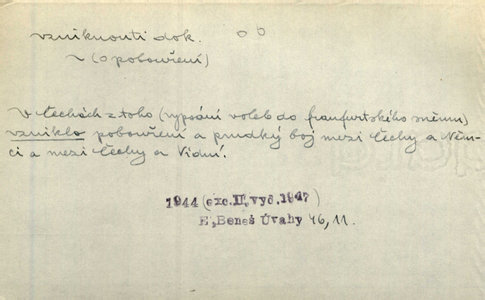 vzniknouti dok.
~ (o pobouření)
V Čechách z toho (vypsání voleb do franfurtského sněmu)
vzniklo pobouření a prudký boj mezi Čechy a Něm-
ci a mezi Čechy a Vídní.
1944 (exc.II, vyd.1947)
E, Beneš Úvahy 46, 11.